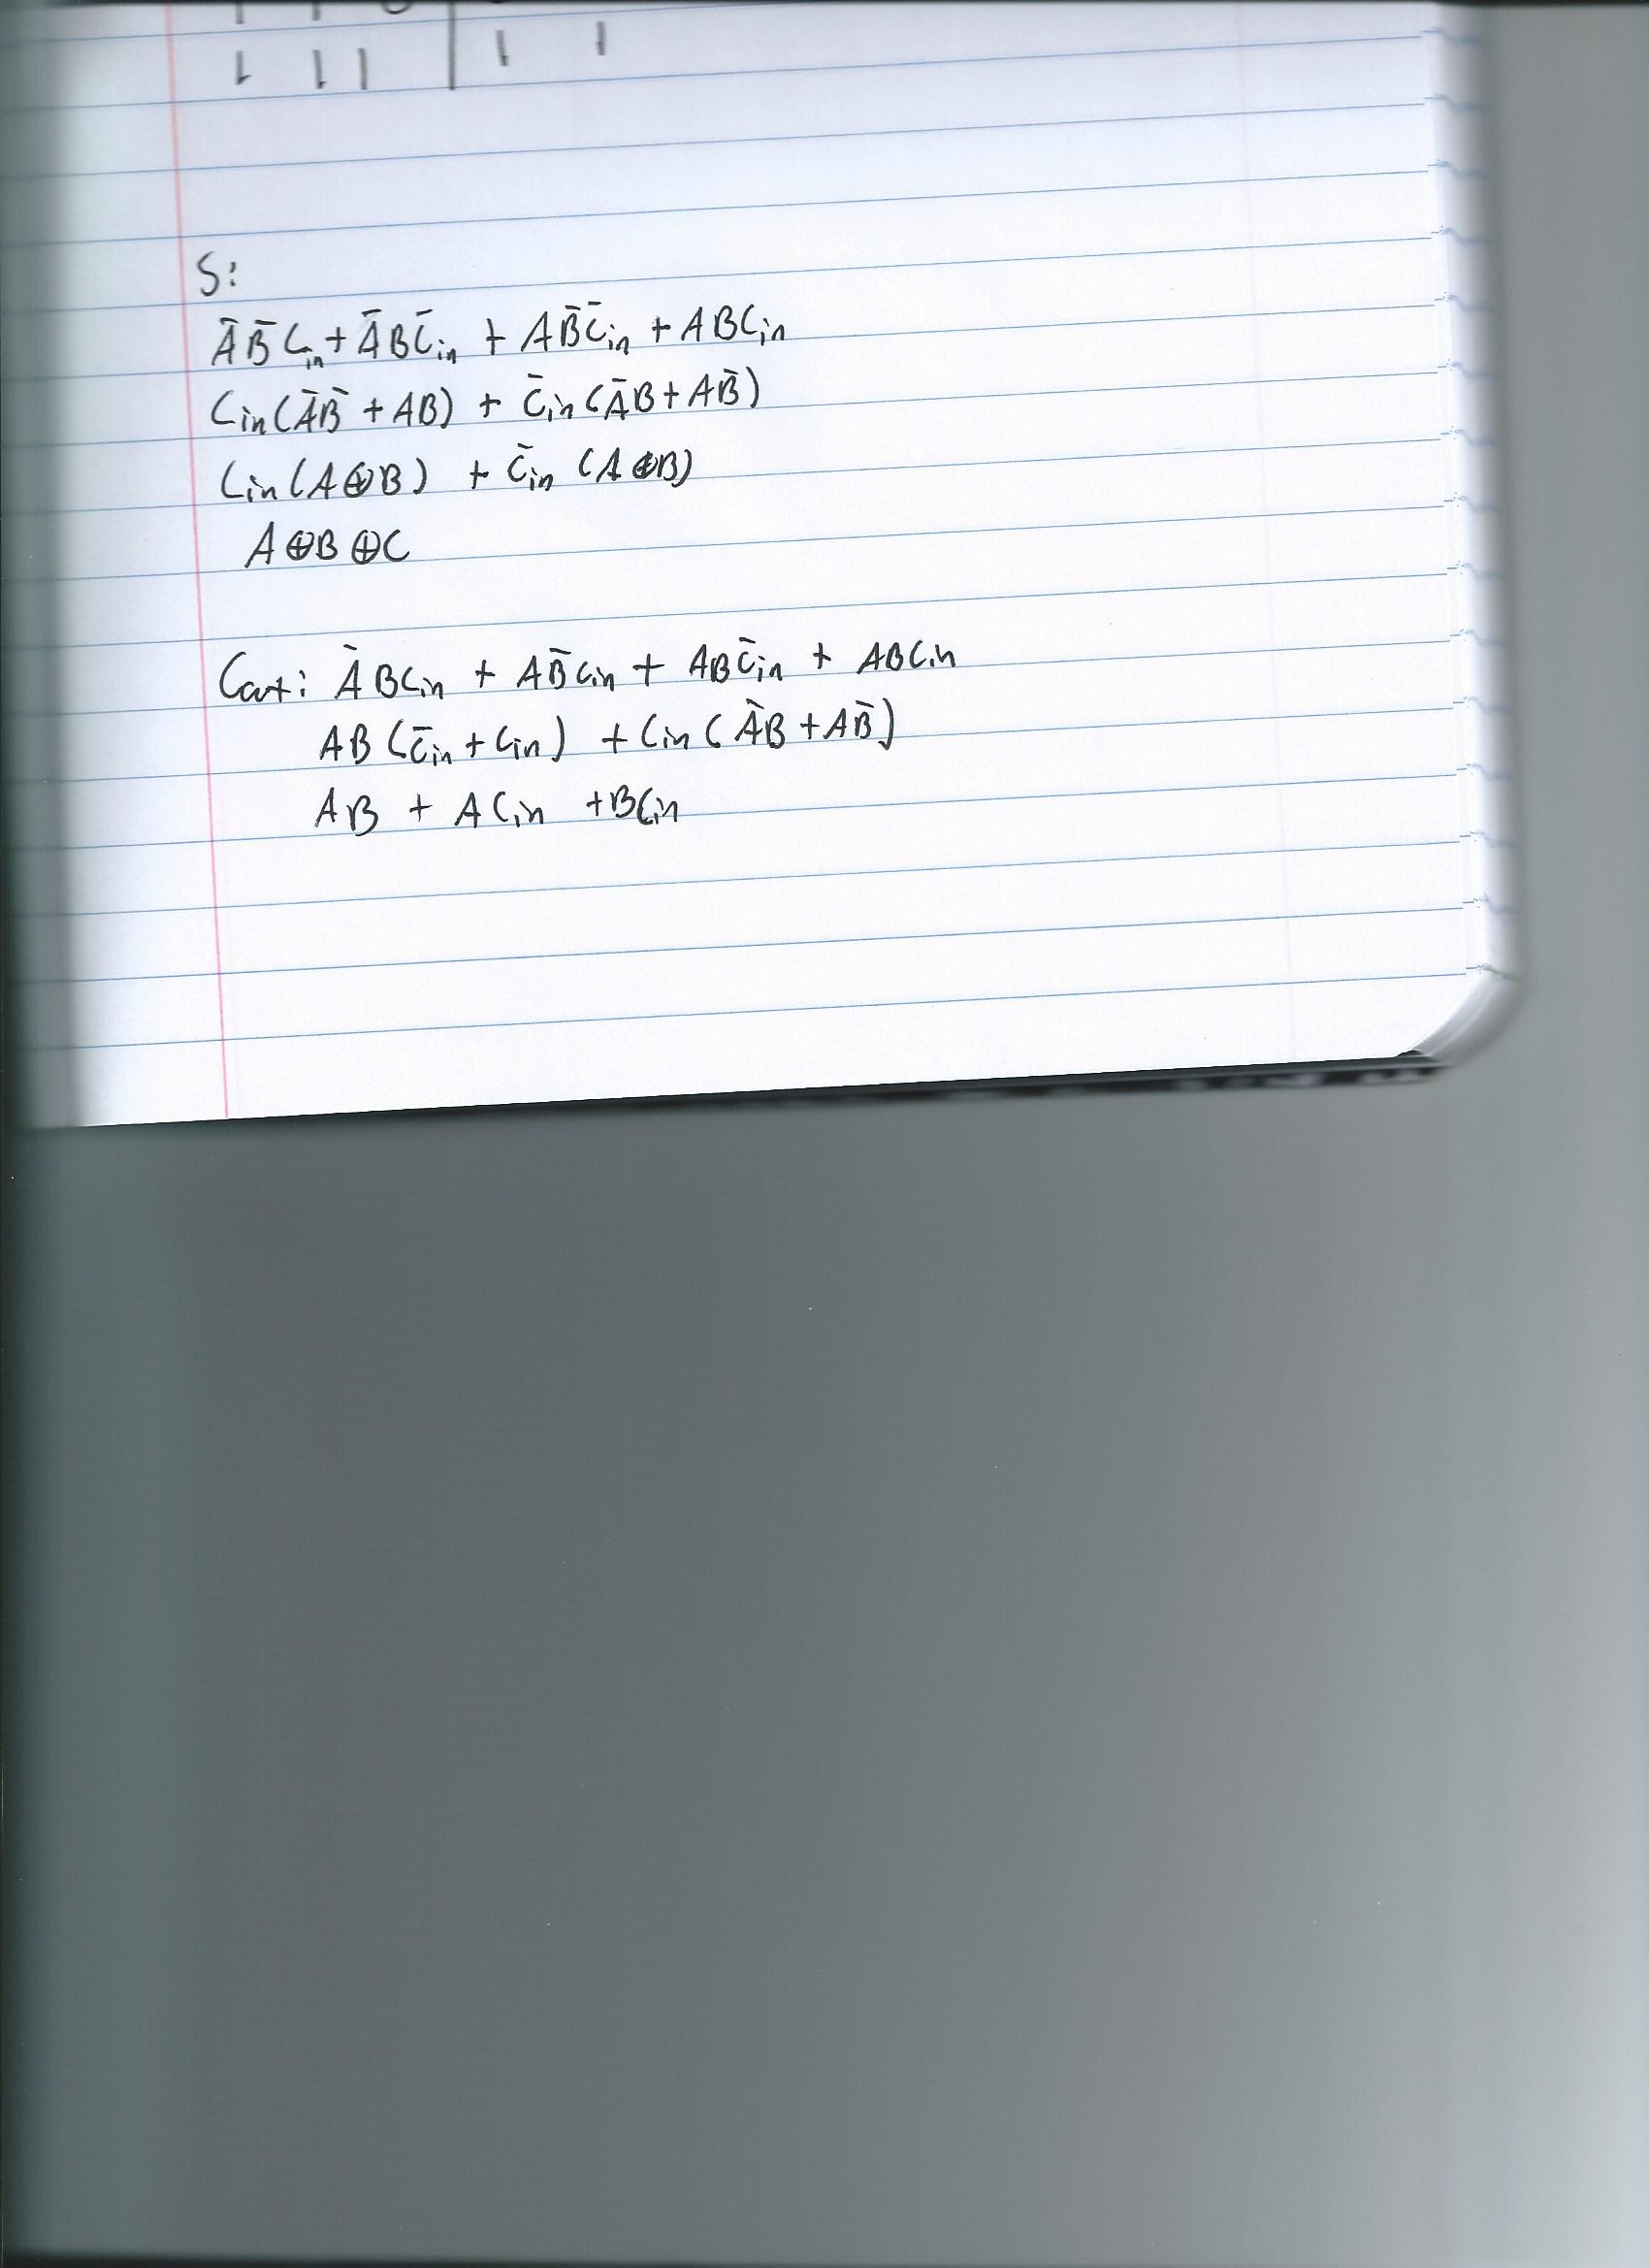 1 1 1 | 1 1
S:
ĀB̄Cin + ĀBC̄in + AB̄C̄in + ABCin
Cin(ĀB̄ + AB) + C̄in(ĀB + AB̄)
Cin(A⊕B) + C̄in (A⊕B)
A⊕B⊕C
Cout: ĀBCin + AB̄Cin + ABC̄in + ABCin
AB(C̄in + Cin) + Cin(ĀB + AB̄)
AB + ACin + BCin